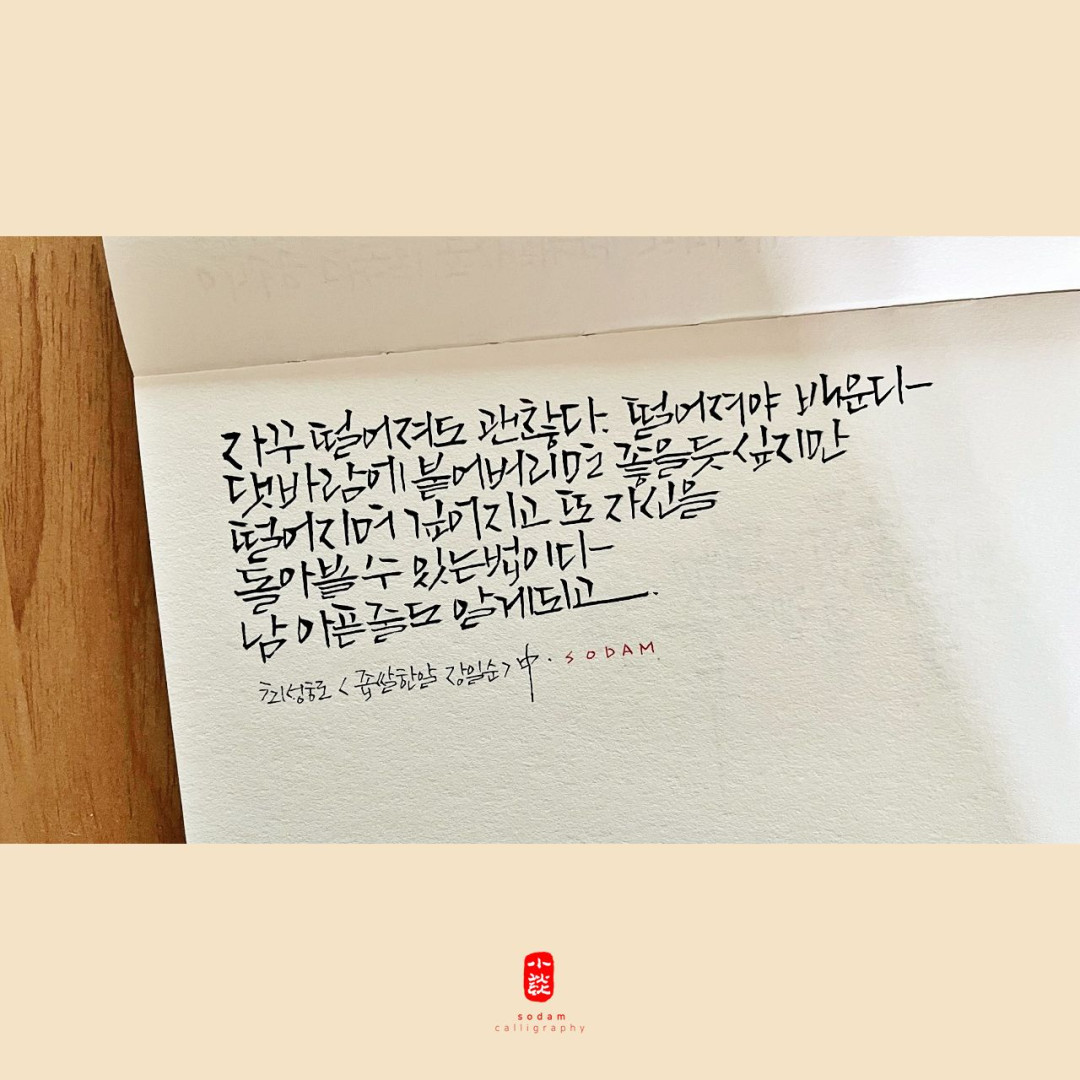 자꾸 떨어져도 괜찮다. 떨어져야 배운다-
댓바람에 붙어버리면 좋을듯 싶지만
떨어지며 깊어지고 또 자신을
돌아볼 수 있는법이다-
남 아픈줄도 알게되고.
최성현 <좁쌀한알 장일순> 中. SODAM
小談
sodam
calligraphy